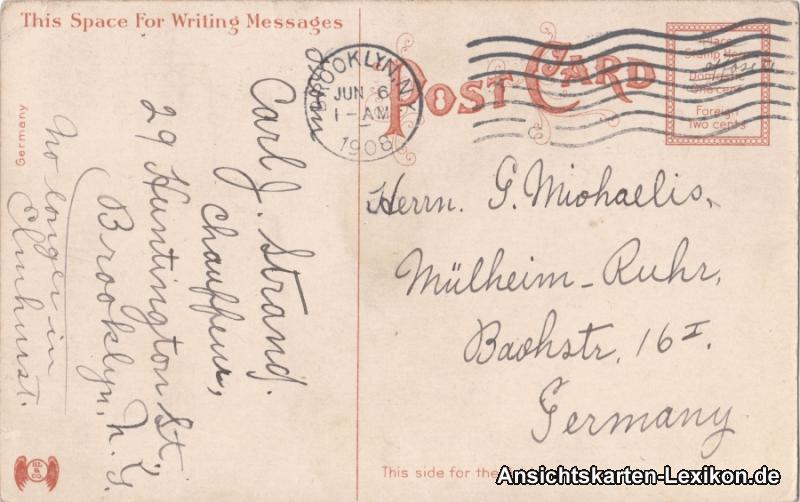 This Space For Writing Messages
POST CARD
Place
Stamp Here
One cent
Foreign
Two cents
BROOKLYN, N.Y.
JUN 6
1-AM
1908
Carl J. Strand.
Chauffeur,
29 Huntington St.,
Brooklyn, N.Y.
No longer in
Elmhurst.
Germany
Herrn. G. Michaelis,
Mülheim-Ruhr,
Bachstr. 16 I.
Germany
This side for the
Ansichtskarten-Lexikon.de